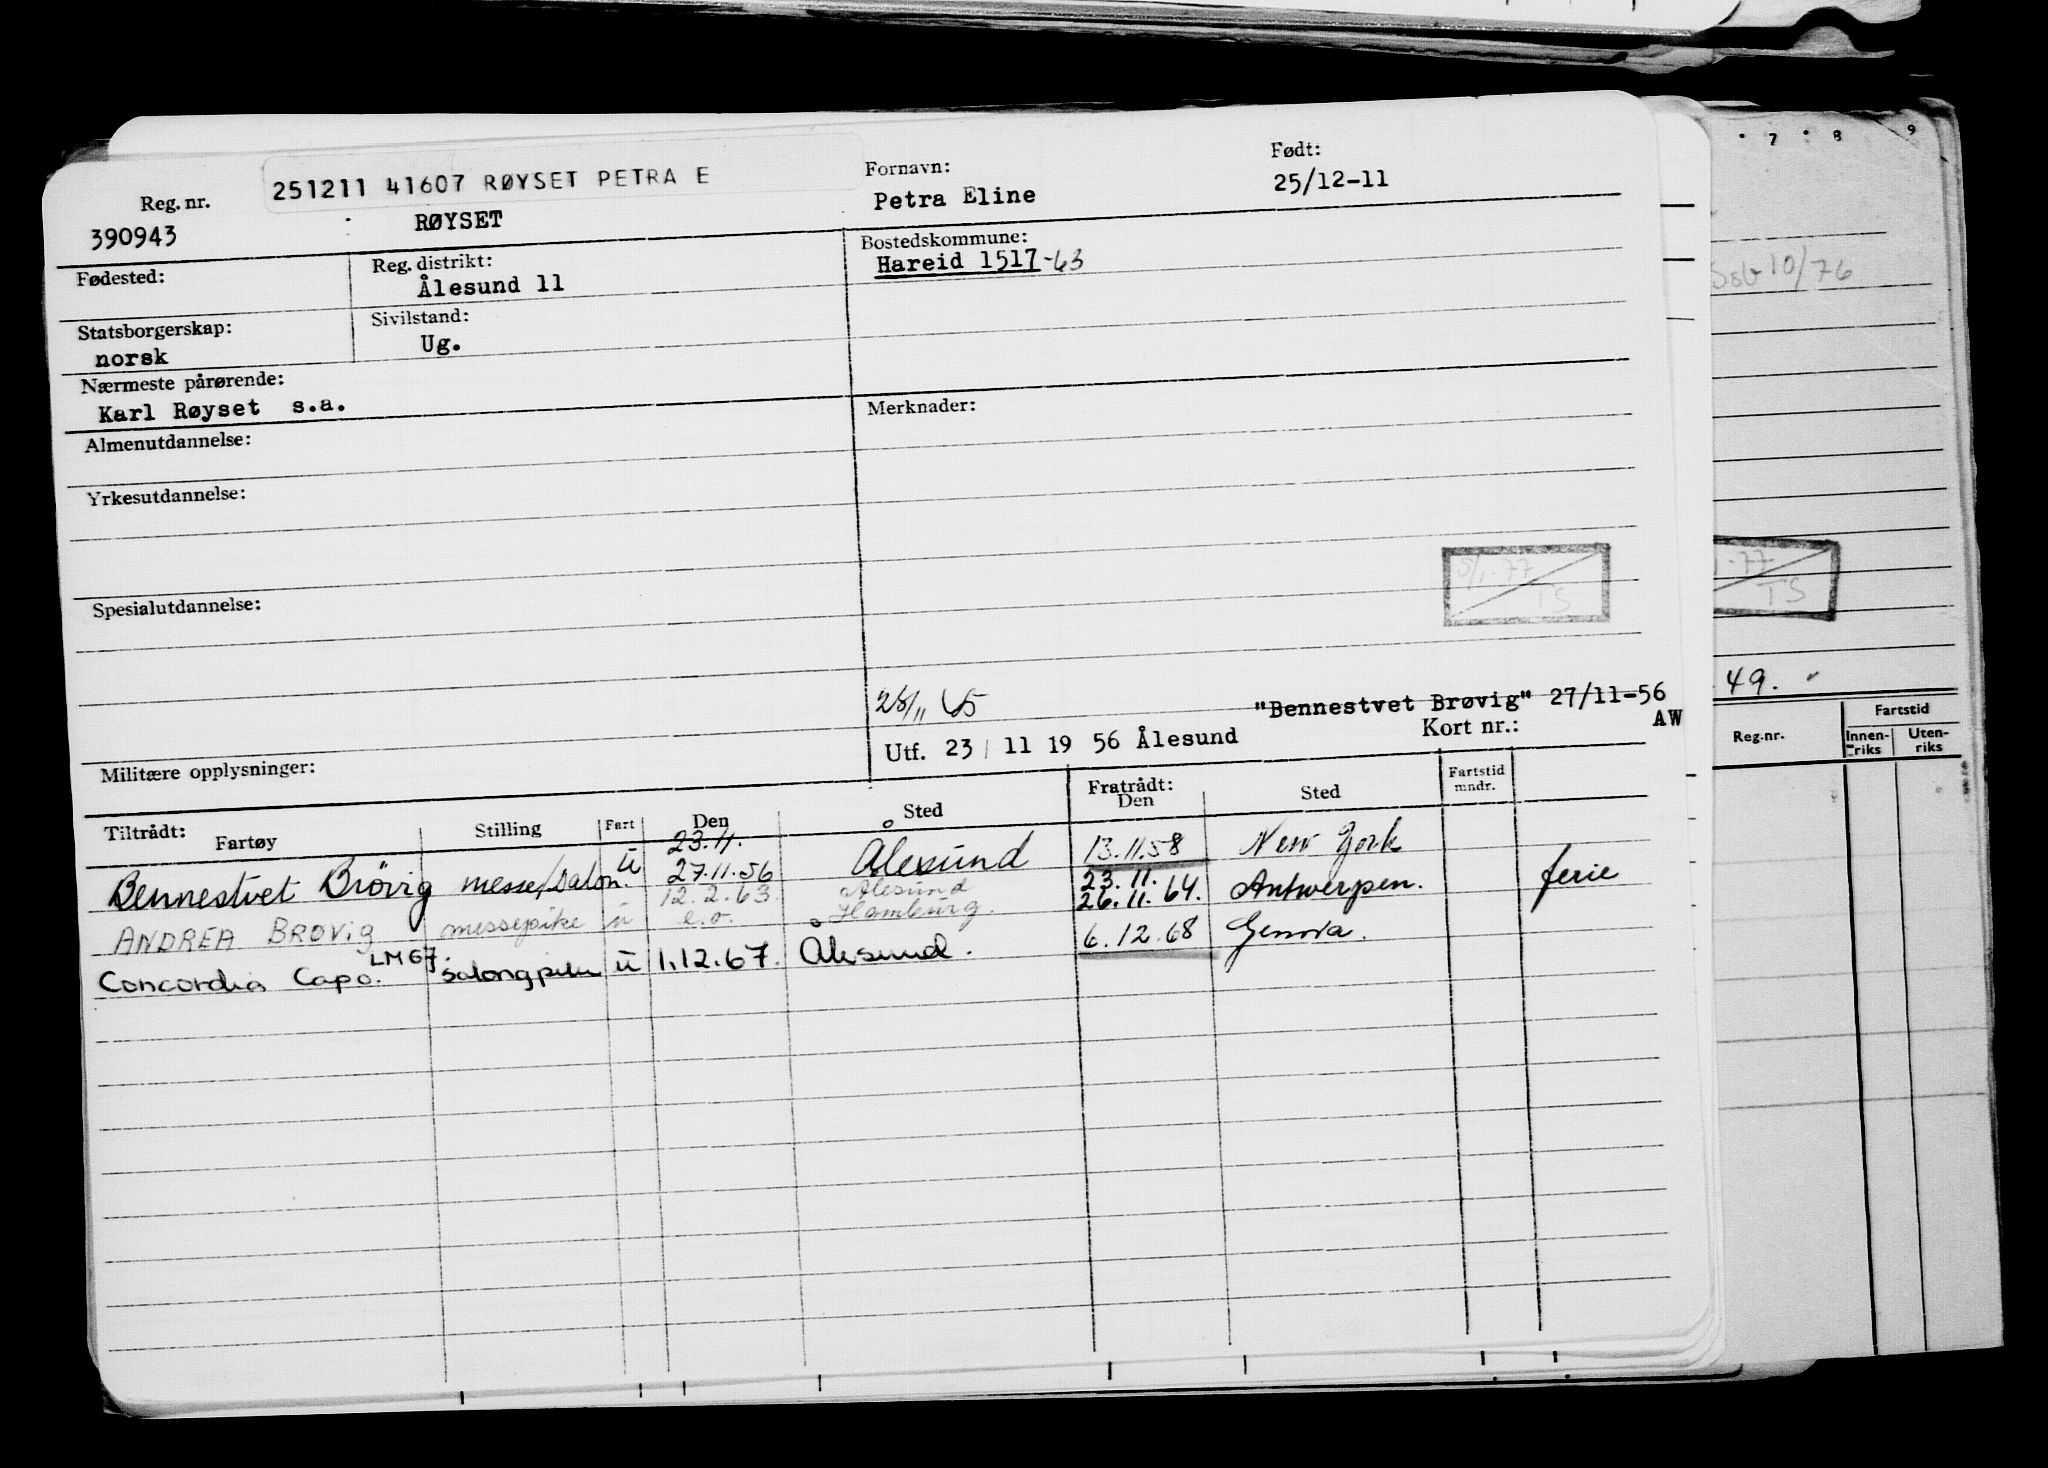 251211 41607 RØYSET PETRA E
Reg. nr.
390943
RØYSET
Fornavn:
Petra Eline
Født:
25/12-11
Fødested:
Reg. distrikt:
Ålesund 11
Bostedskommune:
Hareid 1517-63
Statsborgerskap:
norsk
Sivilstand:
Ug.
Nærmeste pårørende:
Karl Røyset s.a.
Almenutdannelse:
Merknader:
Yrkesutdannelse:
5/1-77
TS
Spesialutdannelse:
"Bennestvet Brøvig" 27/11-56
AW
Utf. 23/11 19 56 Ålesund
Kort nr.:
Militære opplysninger:
Tiltrådt:
Fartøy Stilling Fart Den Sted
Fratrådt:
Den Sted
Fartstid
mndr.
23.11.
Bennestvet Brövig messe/salon. u 27.11.56 Ålesund 13.11.58 New York
12.2.63. Ålesund 23.11.
ANDREA BRØVIG messepike u e.o. Hamburg. 26.11.64. Antwerpen. ferie
LM67.
Concordia Capo. salongpike u 1.12.67. Ålesund. 6.12.68 Genova.
7 8 9
10/76
1-77
TS
49.
Reg.nr.
Fartstid
Innen-
riks
Uten-
riks